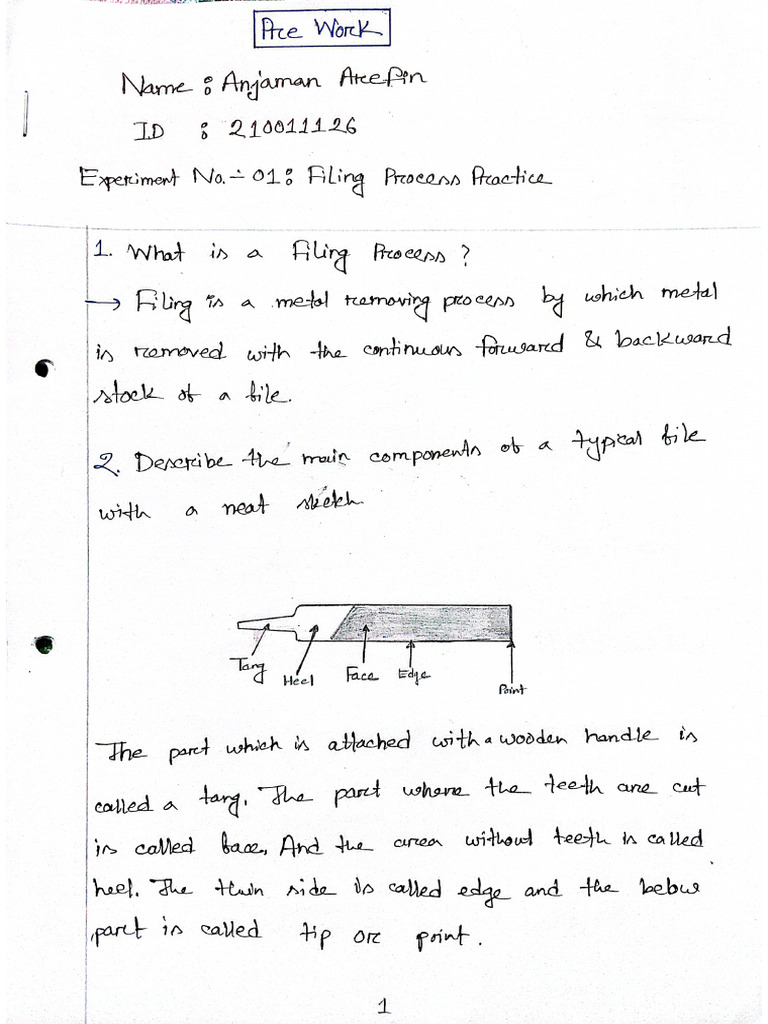 Pre Work
Name : Anjaman Arefin
ID : 210011126
Experiment No.- 01: Filing Process Practice
1. What is a Filing Process?
→ Filing is a metal removing process by which metal
is removed with the continuous forward & backward
stock of a file.
2. Describe the main components of a typical file
with a neat sketch
Tang
Heel
Face
Edge
Point
The part which is attached with a wooden handle is
called a tang. The part where the teeth are cut
is called face, And the area without teeth is called
heel. The thin side is called edge and the below
part is called tip or point.
1